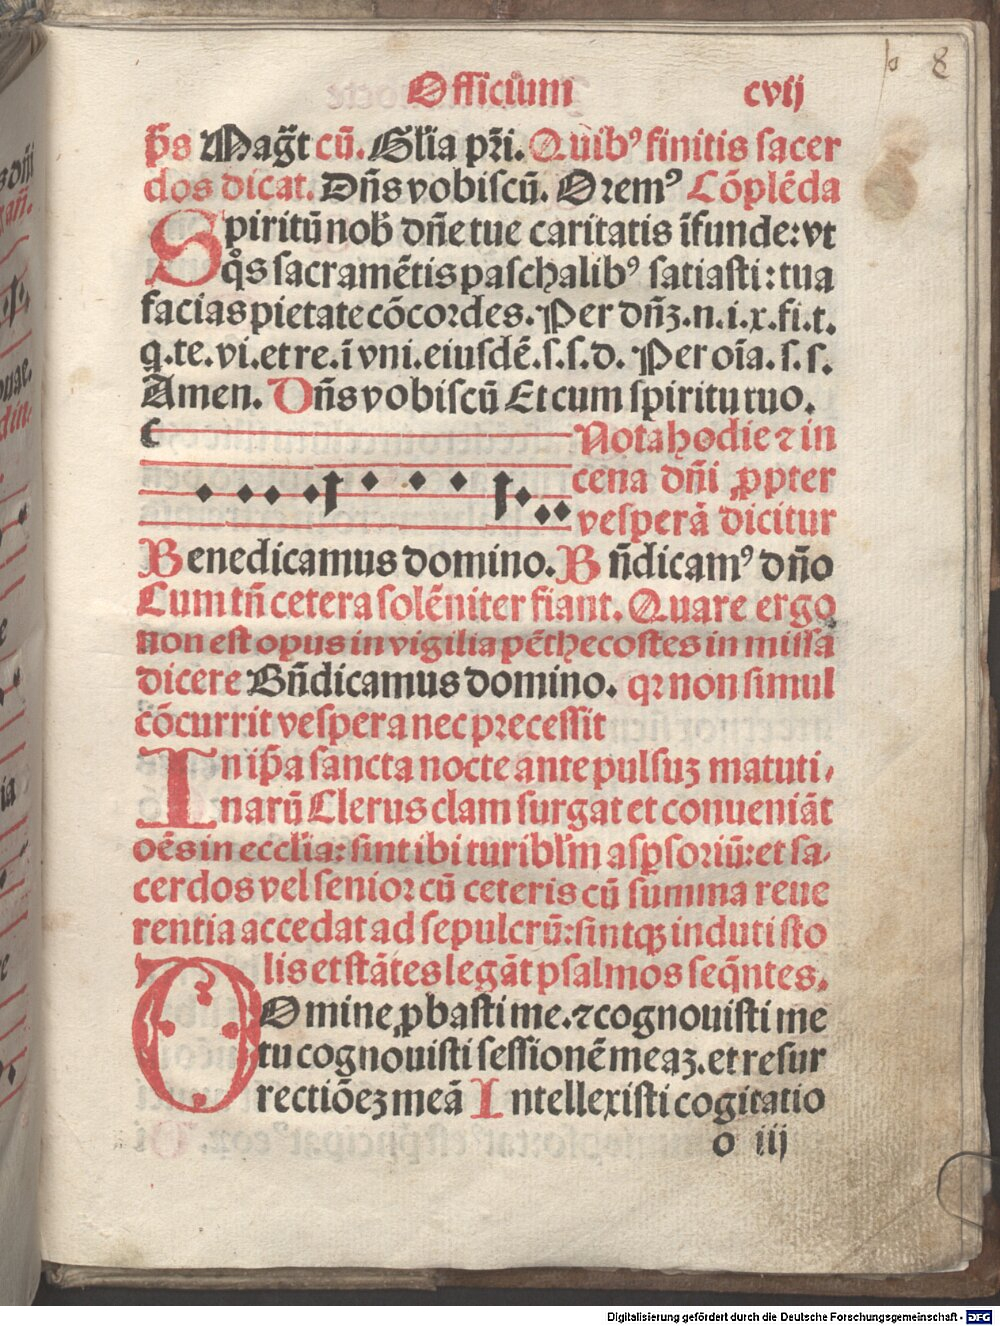 b 8
Officium cvij
p̄s Mag̃t cū. Gl̄ia pr̄i. Quibꝰ finitis sacer
dos dicat. Dn̄s vobiscū. Oremꝰ Cōplēda
Spiritū nob̄ dn̄e tue caritatis īfunde: vt
q̊s sacramētis paschalibꝰ satiasti: tua
facias pietate cōcordes. Per dn̄ꝫ. n. i. x. fi. t.
q. te. vi. et re. ī vni. eiusdē. s. s. d. Per oīa. s. s.
Amen. Dn̄s vobiscū Et cum spiritu tuo.
Nota hodie ⁊ in
cena dn̄i ꝓpter
vesperā dicitur
Benedicamus domino. B n̄dicamꝰ dn̄o
Cum tn̄ cetera solēniter fiant. Quare ergo
non est opus in vigilia pēthecostes in missa
dicere Bn̄dicamus domino. qꝛ non simul
cōcurrit vespera nec precessit
In ip̄a sancta nocte ante pulsuꝫ matuti⸗
narū Clerus clam surgat et conueniāt
oēs in eccl̄ia: sint ibi turibl̄m asꝑsoriū: et sa⸗
cerdos vel senior cū ceteris cū summa reue
rentia accedat ad sepulcrū: sintqꝫ induti sto
lis et stātes legāt psalmos seq̄ntes.
DOmine ꝓbasti me. ⁊ cognouisti me
tu cognouisti sessionē meaꝫ. et resur
rectiōeꝫ meā Intellexisti cogitatio
o iij
Digitalisierung gefördert durch die Deutsche Forschungsgemeinschaft - DFG